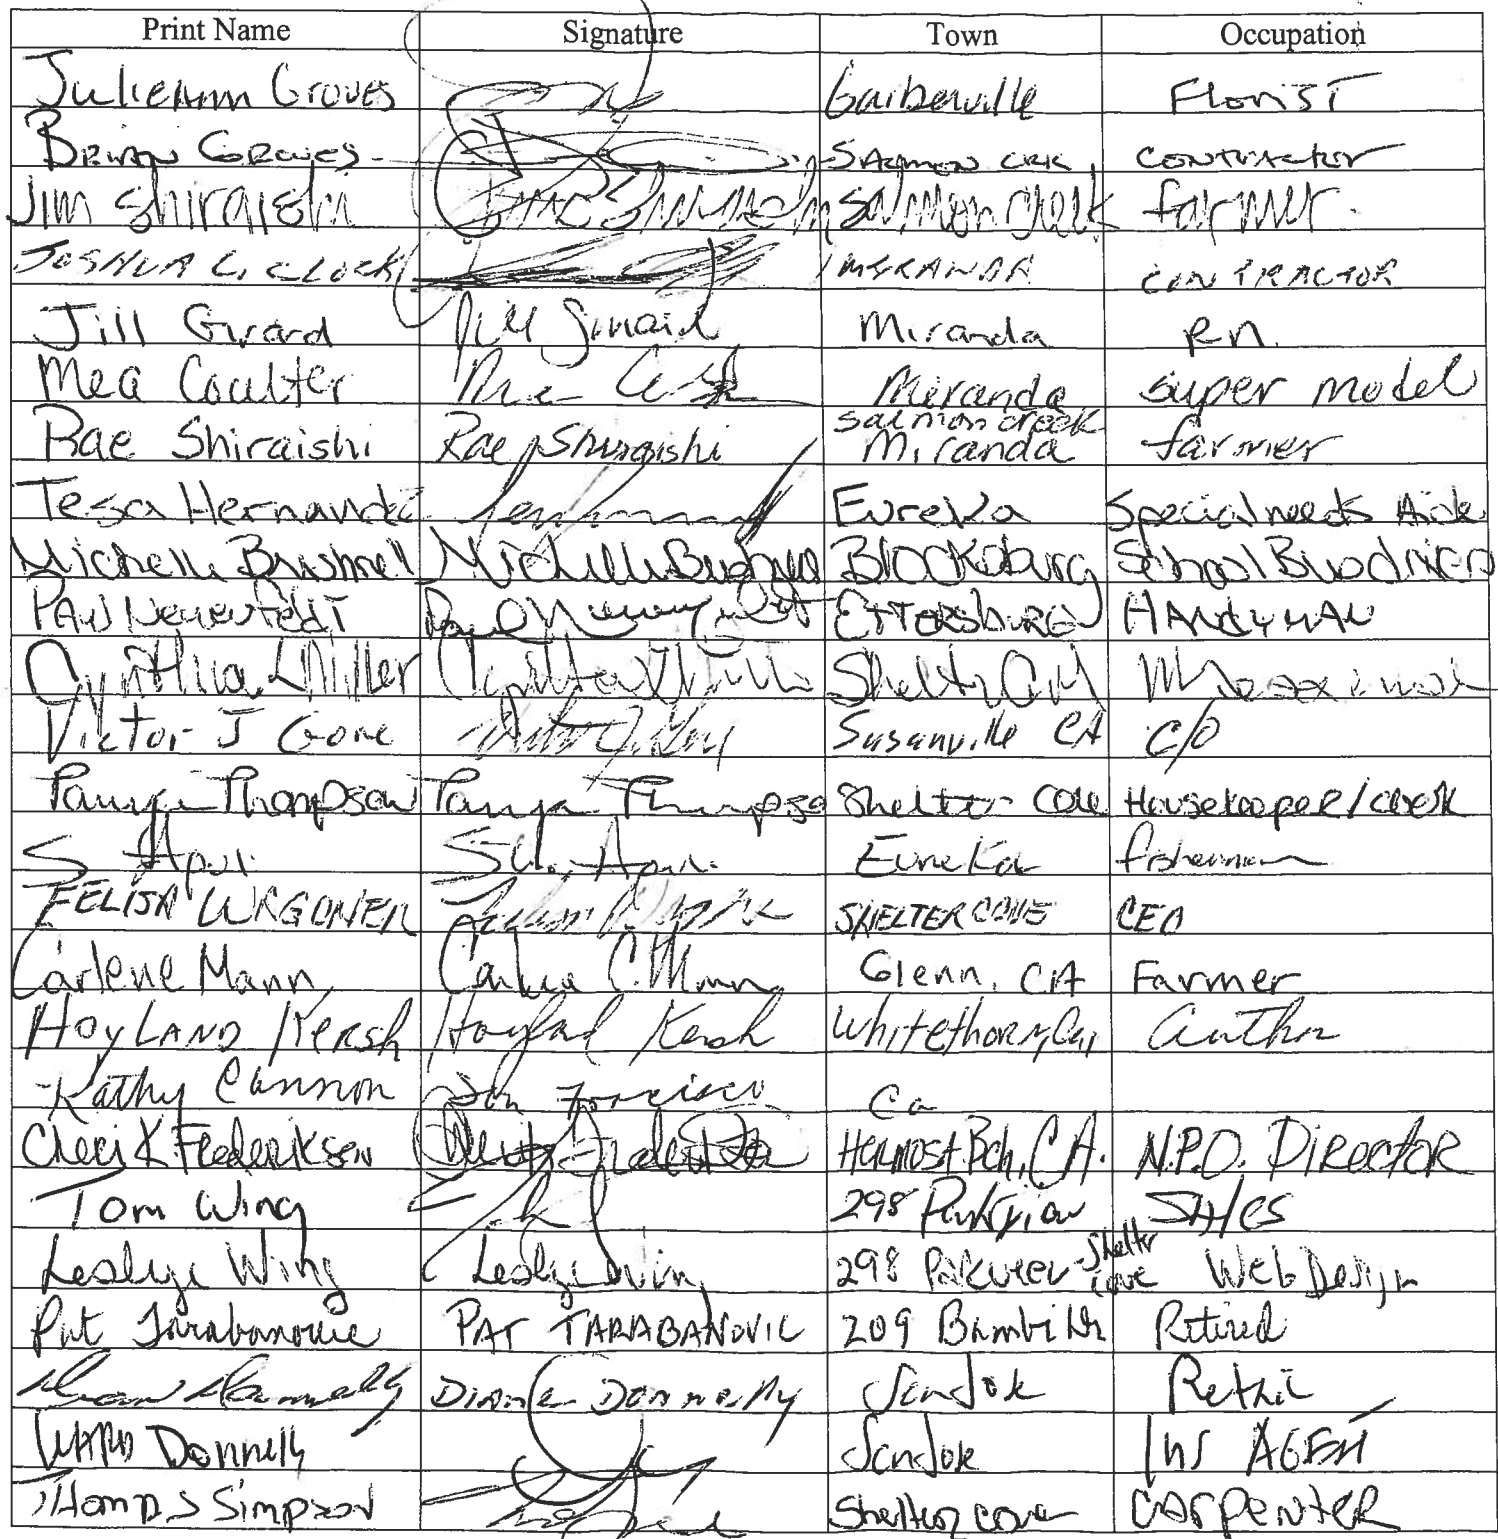 Print Name Signature Town Occupation
Julieann Groves Garberville Florist
Brian Groves Salmon Crk, Contractor
Jim Shiraishi Salmon Creek farmer
JOSHUA C. CLOCK MIRANDA CONTRACTOR
Jill Girard Jill Girard Miranda RN
Mea Coulter Miranda super model
Salmon creek
Rae Shiraishi Rae Shiraishi Miranda farmer
Tesa Hernandez Eureka Special needs Aide
Michelle Bushnell Michelle Bushnell Blocksburg School Bus driver
Paul Neuenfedt ETTERSBURG HANDYMAN
Cynthia L Miller
Victor J Gore Susanville CA C/O
Tanya Thompson Tanya Thompson Shelter Cove Housekeeper/clerk
S Eureka fisherman
FELISA WAGONER SHELTER COVE CEO
Carlene Mann C. Mann Glenn, CA Farmer
HOYLAND Kersh Hoyland Kersh Whitethorn, Ca, author
Kathy Cannon San Francisco Ca
Cheri K Frederiksen Hermosa Bch, CA. N.P.O. DIRECTOR
Tom Wing 298 Parkview SALES
Leslye Wing Leslye Wing 298 Parkview Shelter Cove Web Design
Pat Tarabanovic PAT TARABANOVIC 209 Bambi Dr Retired
Diane Donnelly Diane Donnelly San Jose
WARD Donnelly San Jose Ins AGENT
Thomas Simpson Shelter cove CARPENTER